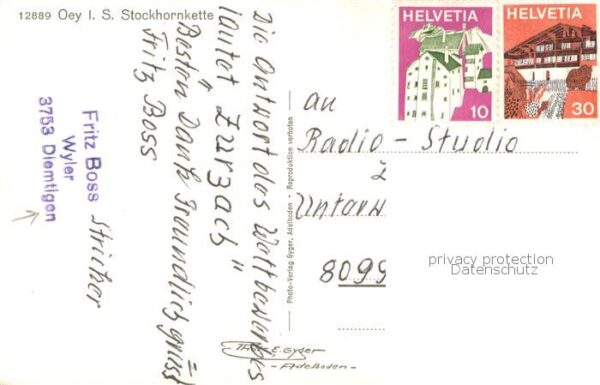 12889 Oey I. S. Stockhornkette
Die Antwort des Wettbewerbes
lautet "Zurzach"
Besten Dank Freundlich grüsst
Fritz Boss
Fritz Boss
Wyler
3753 Diemtigen
Photo-Verlag Gyger, Adelboden - Reproduktion verboten
HELVETIA
10
HELVETIA
30
an
Radio-Studio
Unterw
8099
privacy protection
Datenschutz
E. Gyger
-Adelboden-